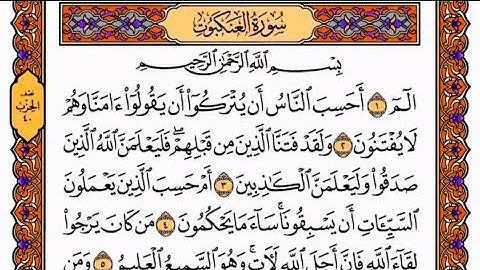 سُورَةُ الْعَنكَبُوتِ
بِسْمِ اللَّهِ الرَّحْمَٰنِ الرَّحِيمِ
الٓمٓ ١ أَحَسِبَ النَّاسُ أَن يُتْرَكُوٓا أَن يَقُولُوٓا ءَامَنَّا وَهُمْ
لَا يُفْتَنُونَ ٢ وَلَقَدْ فَتَنَّا الَّذِينَ مِن قَبْلِهِمْ ۖ فَلَيَعْلَمَنَّ اللَّهُ الَّذِينَ
صَدَقُوا وَلَيَعْلَمَنَّ الْكَٰذِبِينَ ٣ أَمْ حَسِبَ الَّذِينَ يَعْمَلُونَ
السَّيِّـَٔاتِ أَن يَسْبِقُونَا ۚ سَآءَ مَا يَحْكُمُونَ ٤ مَن كَانَ يَرْجُوا
لِقَآءَ اللَّهِ فَإِنَّ أَجَلَ اللَّهِ لَـَٔاتٍ ۚ وَهُوَ السَّمِيعُ الْعَلِيمُ ٥ وَمَن
نصف
الحزب
٤٠